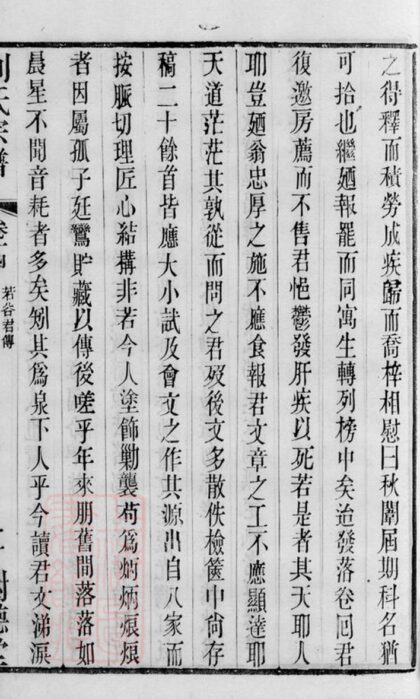 之得釋而積勞成疾歸而喬梓相慰曰秋闈屆期科名猶
可拾也繼廼報罷而同寓生轉列榜中矣迨發落卷回君
復邀房薦而不售君悒鬱發肝疾以死若是者其天耶人
耶豈廼翁忠厚之施不應食報君文章之工不應顯達耶
天道茫茫其孰從而問之君歿後文多散佚檢篋中尙存
稿二十餘首皆應大小試及會文之作其源出自八家而
按脈切理匠心結搆非若今人塗飾勦襲苟爲炳炳烺烺
者因屬孤子廷鸞貯藏以傳後嗟乎年來朋舊間落落如
晨星不聞音耗者多矣矧其爲泉下人乎今讀君文涕淚
氏宗譜
卷
若谷君傳